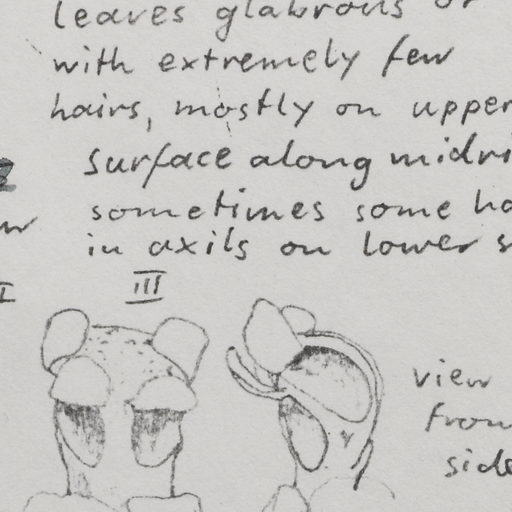 leaves glabrous or
with extremely few
hairs, mostly on upper
surface along midri
sometimes some ha
in axils on lower s
III
view
from
side